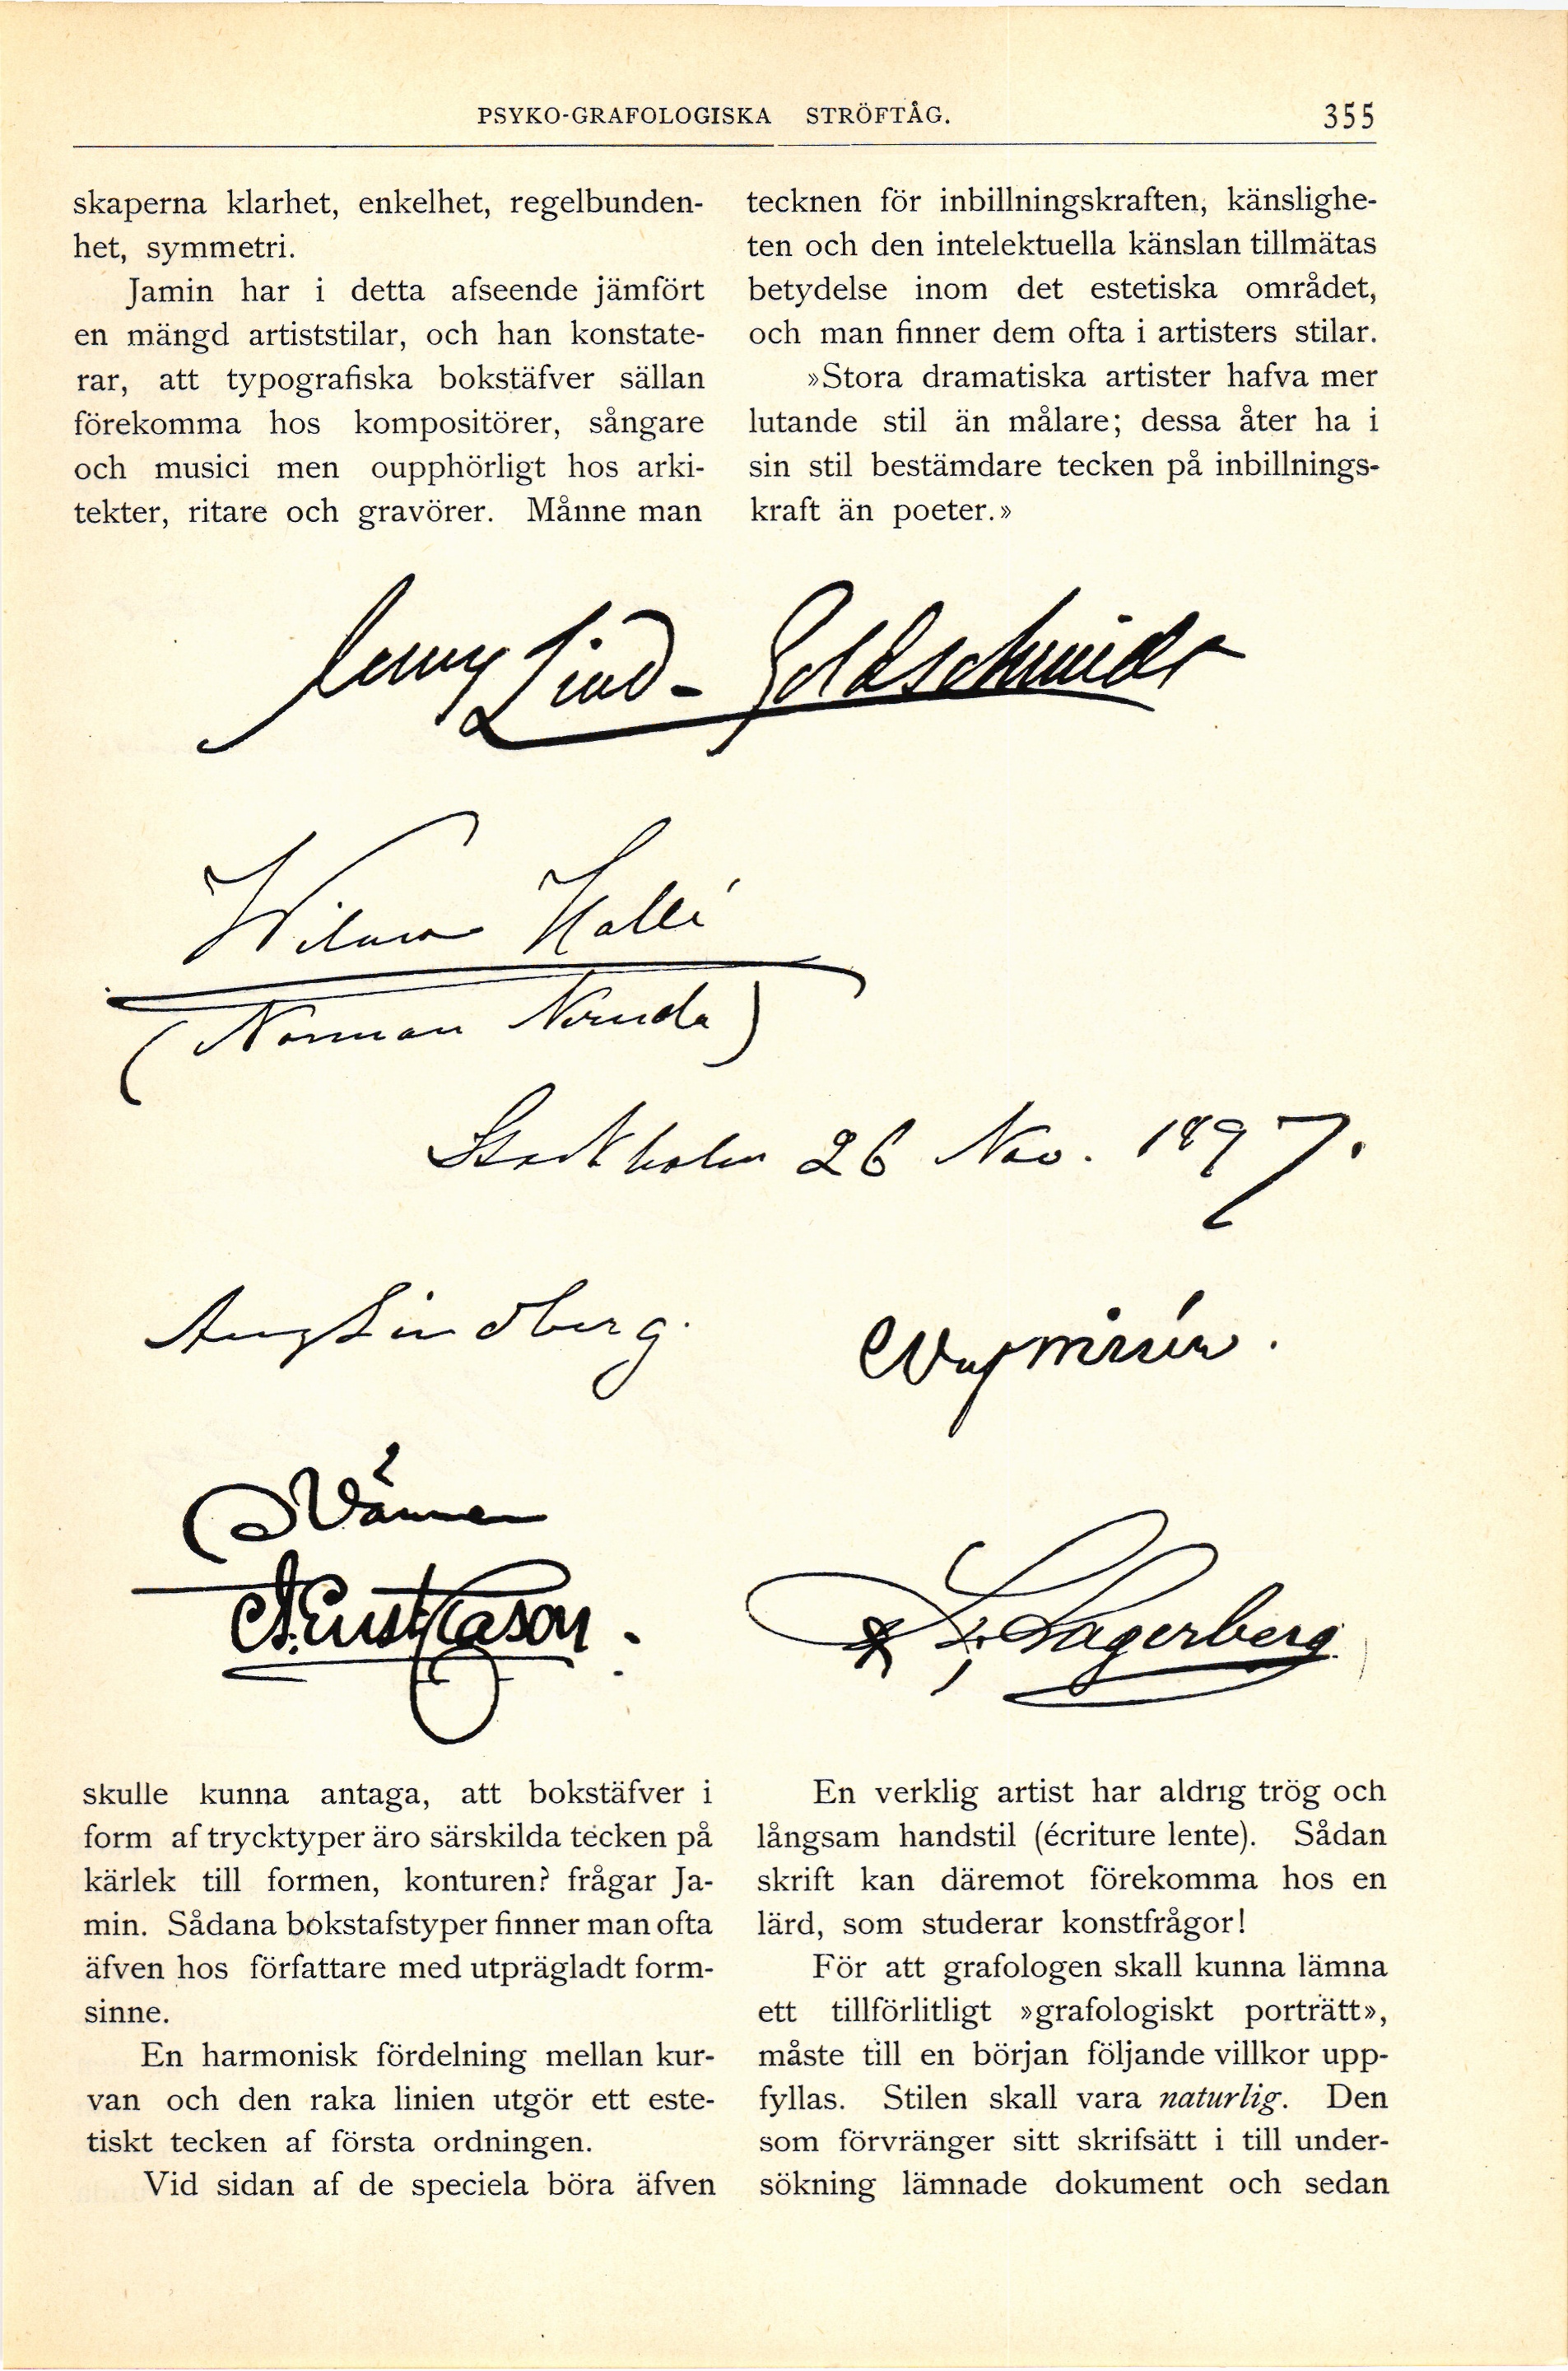 PSYKO-GRAFOLOGISKA STRÖFTÅG.
355
skaperna klarhet, enkelhet, regelbunden-
het, symmetri.
Jamin har i detta afseende jämfört
en mängd artiststilar, och han konstate-
rar, att typografiska bokstäfver sällan
förekomma hos kompositörer, sångare
och musici men oupphörligt hos arki-
tekter, ritare och gravörer. Månne man
tecknen för inbillningskraften, känslighe-
ten och den intelektuella känslan tillmätas
betydelse inom det estetiska området,
och man finner dem ofta i artisters stilar.
»Stora dramatiska artister hafva mer
lutande stil än målare; dessa åter ha i
sin stil bestämdare tecken på inbillnings-
kraft än poeter.»
Jenny Lind-Goldschmidt
Wilma Hallé
(Norman Neruda)
Stockholm 26 Nov. 1897.
Aug Lindberg.
Vännen
Lagerberg.
skulle kunna antaga, att bokstäfver i
form af trycktyper äro särskilda tecken på
kärlek till formen, konturen? frågar Ja-
min. Sådana bokstafstyper finner man ofta
äfven hos författare med utprägladt form-
sinne.
En harmonisk fördelning mellan kur-
van och den raka linien utgör ett este-
tiskt tecken af första ordningen.
Vid sidan af de speciela böra äfven
En verklig artist har aldrig trög och
långsam handstil (écriture lente). Sådan
skrift kan däremot förekomma hos en
lärd, som studerar konstfrågor!
För att grafologen skall kunna lämna
ett tillförlitligt »grafologiskt porträtt»,
måste till en början följande villkor upp-
fyllas. Stilen skall vara naturlig. Den
som förvränger sitt skrifsätt i till under-
sökning lämnade dokument och sedan